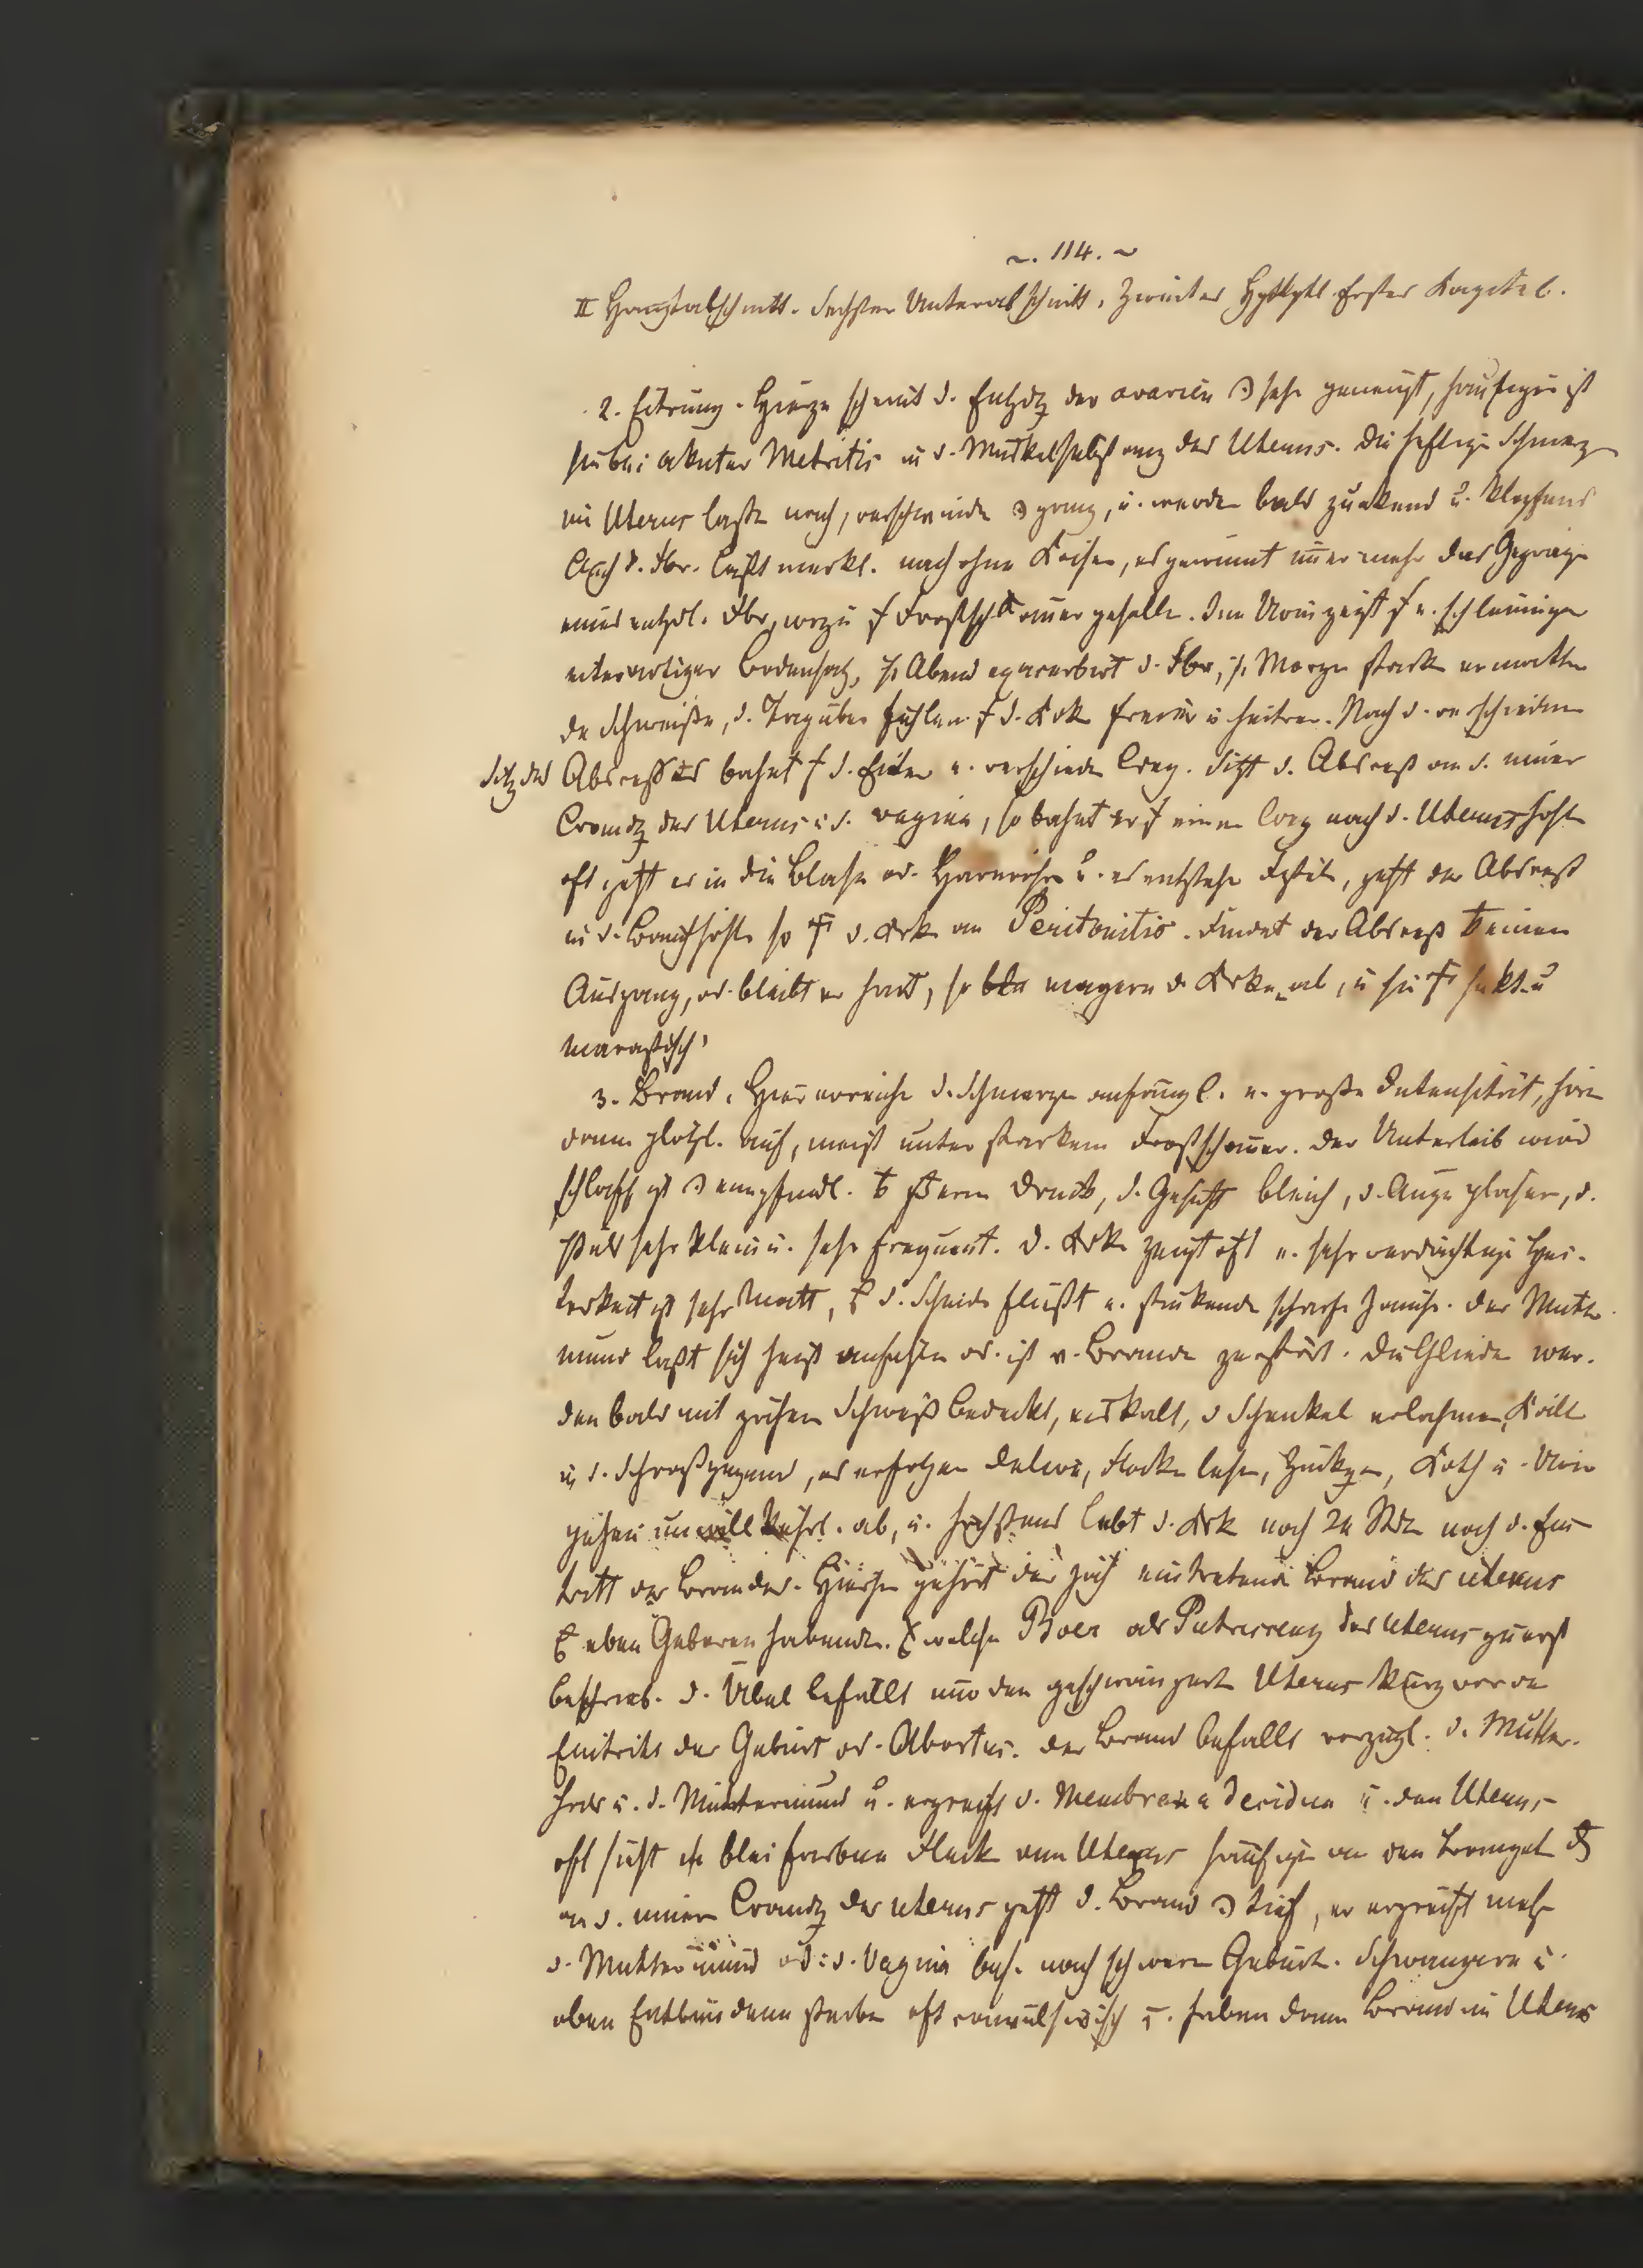 ~. 114. ~
II Hauptabschnitt. Sechster Unterabschnitt. Zweiter Erster Kapitel.
2. Eitrung. Hiezu scheint d. Entzdg der ovarien sehr geneigt, häufiger ist
sie bei akuter Metritis in d. Muskelsubstanz des Uterus. Die heftige Schmerz
im Uterus laßen nach, verschwinden ganz, u. werden bald zuckend u. klopfend
Auch d. Fbr. läßt merkl. nach ohne Krisen, es gewinnt immer mehr das Gepräge
eines entzdl. Fbr, wozu Frostschauer gesellen. Im Urin zeigt e. schleimiger
eiterartiger Bodensatz, Abend exacerbirt d. Fbr, Morgen stark ermatten
de Schweiße, d. Tag über fühlen d. Krk freier u heitrer. Nach d. verschieden
Sitz des Abscesses bahnt d. Eiter e. verschieden Weg. Sitzt d. Absceß an d. inner
Wandg des Uterus u d. vagina, so bahnt er einen Weg nach d. Uterushöhle
oft geht er in die Blase od. Harnröhre u. es entstehn Fisteln, geht der Absceß
in d. Bauchhöhle so d. Krk an Peritonitis. Findet der Absceß keinen
Ausgang, od. bleibt er hart, so magern d. Krken ab, u sie hekt. u
marastisch.
3. Brand. Hier erreichen d. Schmerzen anfängl. e. große Intensität, hören
dann plötzl. auf, meist unter starkem Frostschauer. Der Unterleib wird
schlaff ist empfindl. Druck, d. Gesicht bleich, d. Auge gläsern, d.
Puls sehr klein u. sehr frequent. d. Krk zeigt oft e. sehr verdächtige Hei-
terkeit ist sehr matt, d. Scheide fließt e. stinkende scharfe Jauche. Der Mutter
mund läßt sich heiß anfühlen od. ist v. Brande zerstört. Die Glieder wer-
den bald mit zähem Schweiß bedeckt, eiskalt, d Schenkel erlahmen, Kälte
in d. Schooßgegend, es erfolgen Delirien, Flocken lesen, Zuckgen, Koth u. Urin
gehen unwillkührl. ab, u. höchstens lebt d. Krk noch 24 Std nach d. Ein-
tritt des Brandes. Hieher gehört der eintretende Brand des uterus
eben Geboren habenden. welche Boer als Putrescenz des Uterus zuerst
beschrieb. d. Übel befällt nur den geschwängerten Uterus kurz vor dem
Eintritt der Geburt od. Abortus. Der Brand befällt vorzügl. d. Mutter-
hals u. d. Muttermund u. ergreift d. Membrana decidua u. den Uterus
oft sieht bleifarbene Fleck am Uterus häufiger an den
an d. innern Wandg des uterus geht d. Brand tief, er ergreift mehr
d. Muttermund od: d. Vagina bes. nach schweren Geburten. Schwangere u.
eben Entbundene sterben oft convulsivisch u. haben dann Brand im Uterus